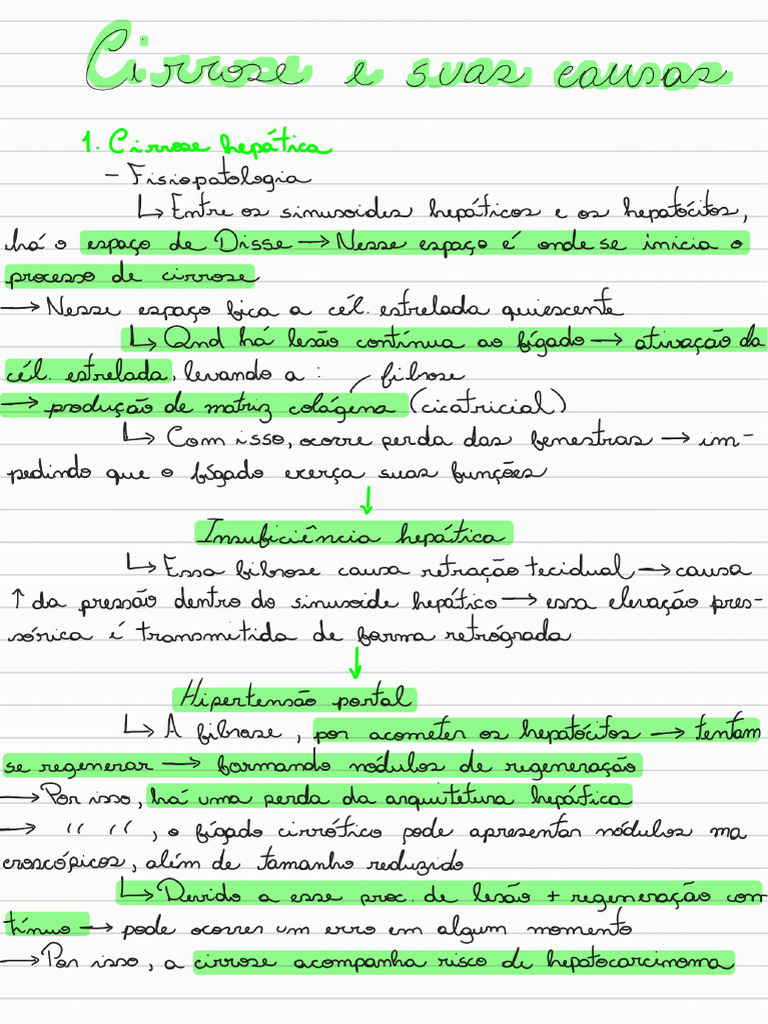 Cirrose e suas causas
1. Cirrose hepática
- Fisiopatologia
↳ Entre os sinusoides hepáticos e os hepatócitos,
há o espaço de Disse → Nesse espaço é onde se inicia o
processo de cirrose
→ Nesse espaço fica a cél. estrelada quiescente
↳ Qnd há lesão contínua ao fígado → ativação da
cél. estrelada, levando a : fibrose
→ produção de matriz colágena (cicatricial)
↳ Com isso, ocorre perda das fenestras → im-
pedindo que o fígado exerça suas funções
↓
Insuficiência hepática
↳ Essa fibrose causa retração tecidual → causa
↑ da pressão dentro do sinusoide hepático → essa elevação pres-
sórica é transmitida de forma retrógrada
↓
Hipertensão portal
↳ A fibrose, por acometer os hepatócitos → tentam
se regenerar → formando nódulos de regeneração
→ Por isso, há uma perda da arquitetura hepática
→ " ", o fígado cirrótico pode apresentar nódulos ma
croscópicos, além de tamanho reduzido
↳ Devido a esse proc. de lesão + regeneração con
tínuo → pode ocorrer um erro em algum momento
→ Por isso, a cirrose acompanha risco de hepatocarcinoma